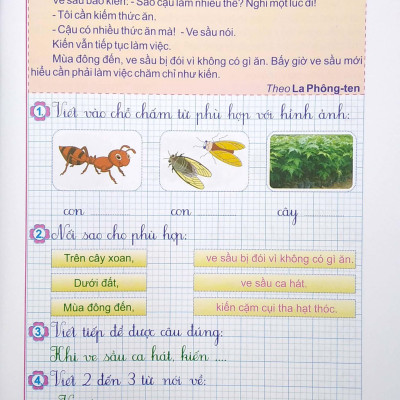 ve sầu bảo kiến: - Sao cậu làm nhiều thế? Nghỉ một lúc đi!
- Tôi cần kiếm thức ăn.
- Cậu có nhiều thức ăn mà! - Ve sầu nói.
Kiến vẫn tiếp tục làm việc.
Mùa đông đến, ve sầu bị đói vì không có gì ăn. Bấy giờ ve sầu mới
hiểu cần phải làm việc chăm chỉ như kiến.
Theo La Phông-ten
1. Viết vào chỗ chấm từ phù hợp với hình ảnh:
con con cây
2. Nối sao cho phù hợp:
Trên cây xoan, ve sầu bị đói vì không có gì ăn.
Dưới đất, ve sầu ca hát.
Mùa đông đến, kiến cặm cụi tha hạt thóc.
3. Viết tiếp để được câu đúng:
Khi ve sầu ca hát, kiến ....
4. Viết 2 đến 3 từ nói về: